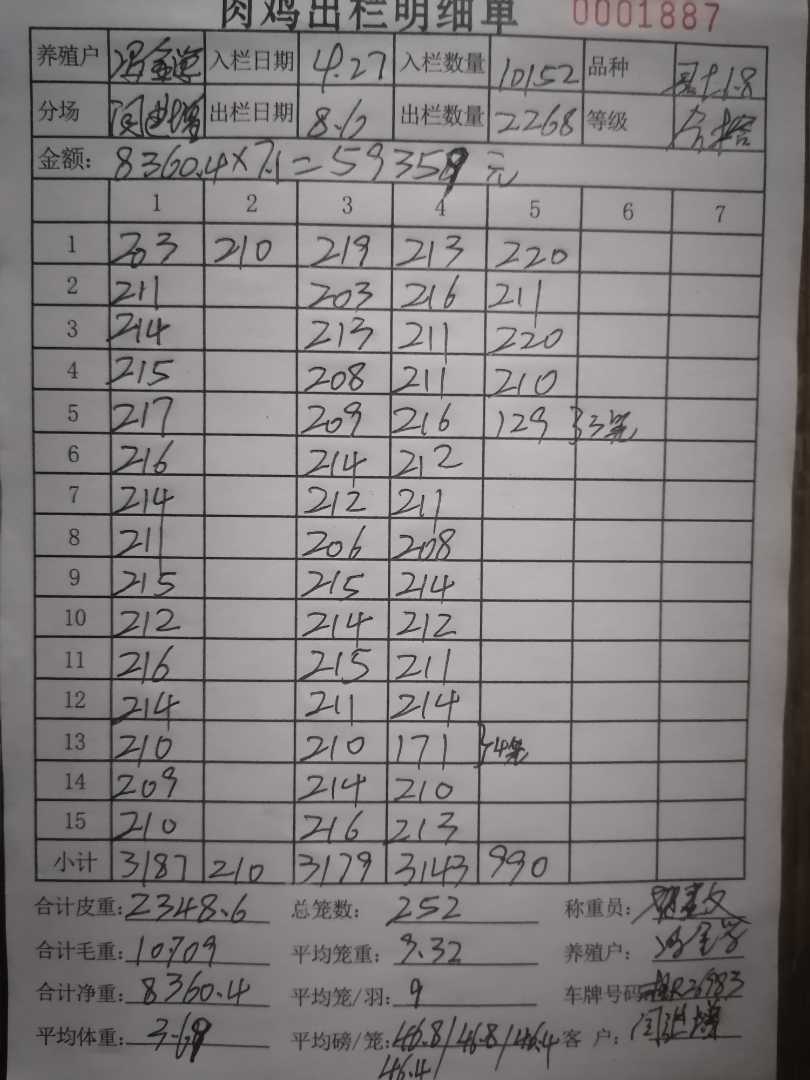 肉鸡出栏明细单 0001887
养殖户 入栏日期 4.27 入栏数量 10152 品种
分场 出栏日期 8.6 出栏数量 2268 等级
金额: 8360.4×7.1=59358元
1 2 3 4 5 6 7
1 203 210 219 213 220
2 211 203 216 211
3 214 213 211 220
4 215 208 211 210
5 217 209 216 129 }3笼
6 216 214 212
7 214 212 211
8 211 206 208
9 215 215 214
10 212 214 212
11 216 215 211
12 214 211 214
13 210 210 171 }4笼
14 209 214 210
15 210 216 213
小计 3187 210 3179 3143 990
合计皮重: 2348.6 总笼数: 252 称重员:
合计毛重: 10709 平均笼重: 9.32 养殖户:
合计净重: 8360.4 平均笼/羽: 9 车牌号码
平均体重: 3.69 平均磅/笼: 46.8/46.8/46.4 客 户:
46.4/